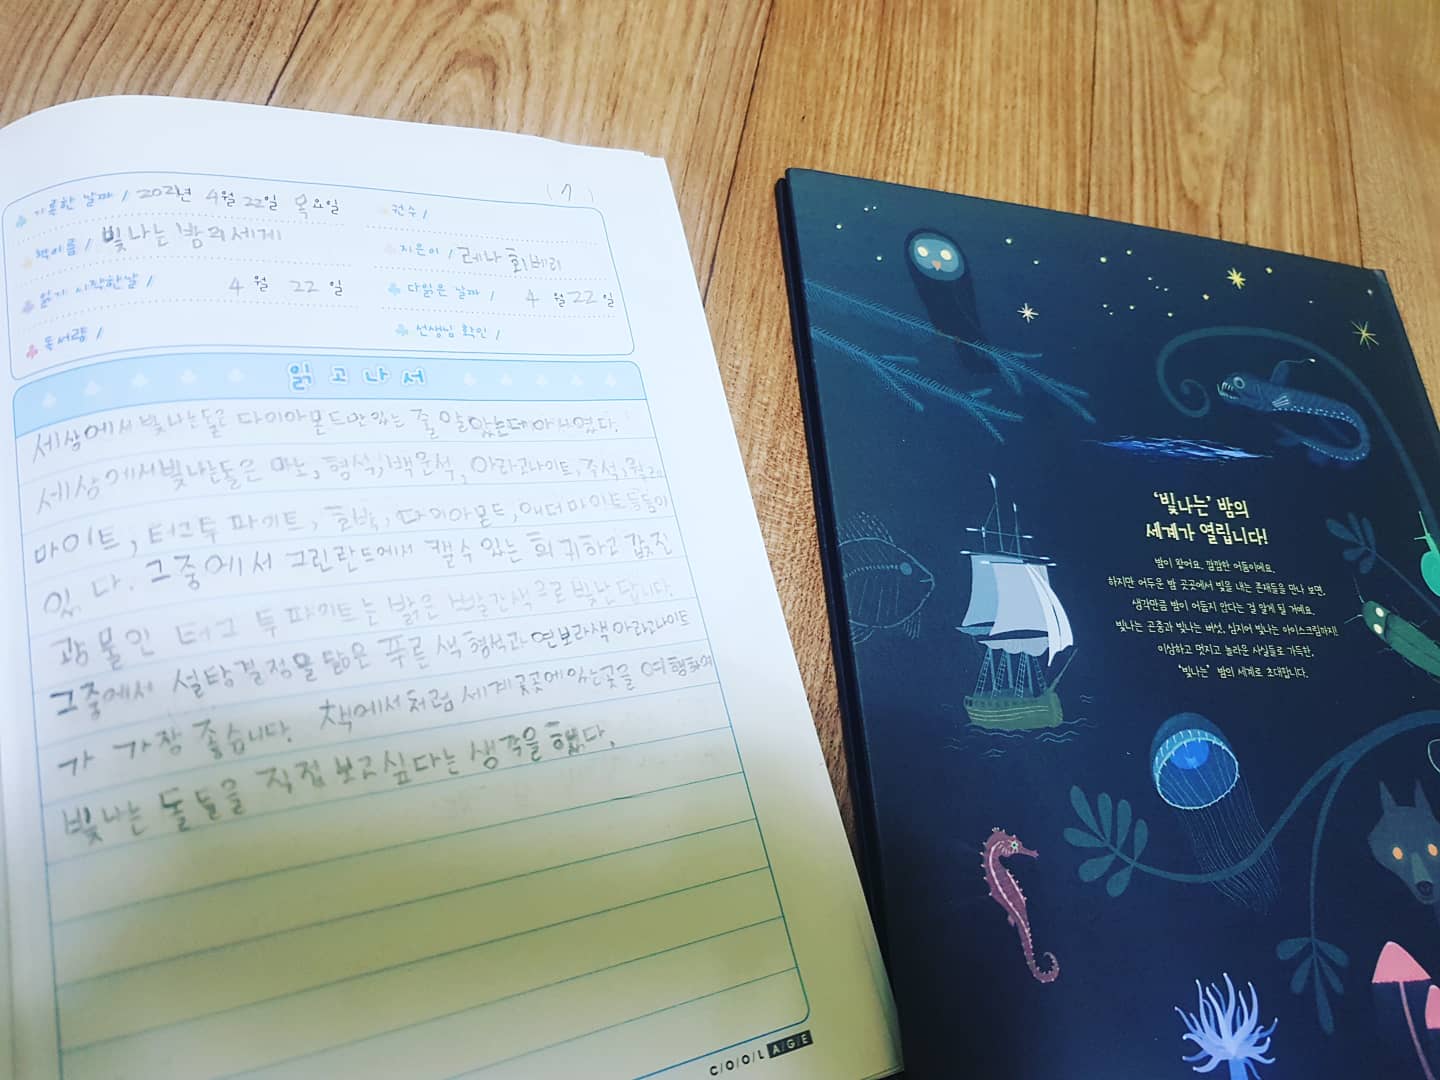 ( 7 )
기록한 날짜 / 2021년 4월 22일 목요일
권수 /
책이름 / 빛나는 밤의 세계
지은이 / 레나 회베리
읽기 시작한날 / 4월 22일
다읽은 날짜 / 4월 22일
독서량 /
선생님 확인 /
읽고나서
세상에서 빛나는돌은 다이아몬드만 있는 줄 알았는데아니였다.
세상에서빛나는돌은 마노, 형석, 백운석, 아라고나이트, 주석,
마이트, 터그투파이트, 호박, 다이아몬드, 애더마이트등등이
있다. 그중에서 그린란드에서 캘수 있는 희귀하고 값진
광물인 터그투파이트는 밝은 빨간색으로 빛난답니다.
그중에서 설탕결정을 닮은 푸른색 형석과 연보라색 아라고나이트
가 가장 좋습니다. 책에서처럼 세계곳곳에있는곳을 여행하며
빛나는 돌들을 직접 보고싶다는 생각을 했다.
C/O/O/L A/G/E
'빛나는' 밤의
세계가 열립니다!
밤이 왔어요. 깜깜한 어둠이에요.
하지만 어두운 밤 곳곳에서 빛을 내는 존재들을 만나 보면,
생각만큼 밤이 어둡지 않다는 걸 알게 될 거예요.
빛나는 곤충과 빛나는 버섯, 심지어 빛나는 아이스크림까지!
이상하고 멋지고 놀라운 사실들로 가득한,
'빛나는' 밤의 세계로 초대합니다.